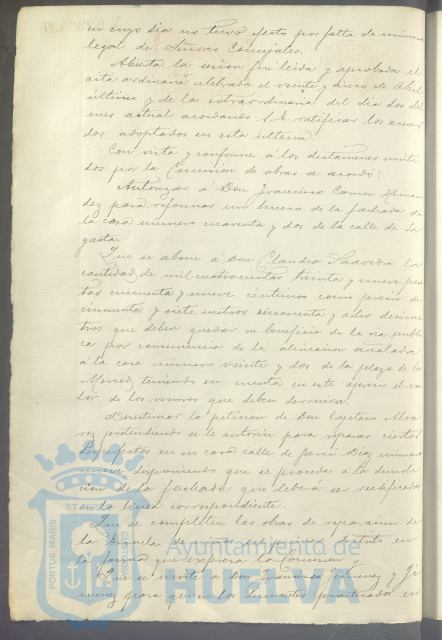 en cuyo dia no tuvo efecto por falta de número
legal de Señores Concejales.
Abierta la sesion fué leida y aprobada el
acta ordinaria celebrada el veinte y cinco de Abril
último y de la extraordinaria del dia dos del
mes actual acordando S.E. ratificar los acuer
dos adoptados en esta última.
Con vista y conforme á los dictámenes emiti
dos por la Comision de obras se acordó:
Autorizar á Don Francisco Hernan
dez para reformar un hueco de la fachada de
la casa número cuarenta y dos de la calle de Sa
gasta.
Que se abone á Don Claudio Saavedra la
cantidad de mil cuatrocientas treinta y nueve pese
tas cincuenta y nueve céntimos como precio de
cincuenta y siete metros cincuenta y ocho decíme
tros que deben quedar en beneficio de la via públi
ca por consecuencia de la alineacion señalada
á la casa número veinte y dos de la plaza de la
Merced, teniendo en cuenta en este aprecio el va
lor de los muros que deben derruirse.
Desestimar la peticion de Don Cayetano Alva
rez pretendiendo se le autorice para reparar ciertos
desperfectos en su casa calle de Garci Diaz número
nueve disponiendo que se proceda á la demoli
cion de la fachada que deberá ser reedificada
en la linea correspondiente.
Que se completen las obras de reparacion de
la Escuela de niños del primer distrito en
la forma que expresa la Comision y
Que se invite á Don Francisco Jimenez y Ji
menez para que en los desmontes practicados en
PORTUS MARIS
ET TERRÆ
CUSTODIA
Ayuntamiento de
HUELVA